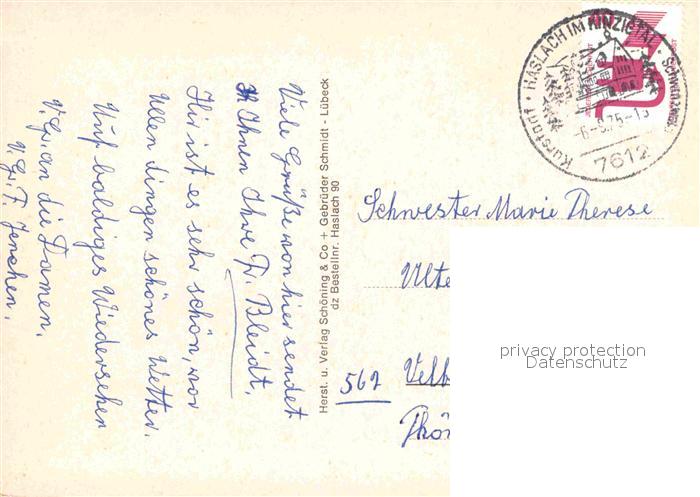 Viele Grüße von hier sendet
Ihnen Ihre Fr. Bleidt.
Hir ist es sehr schön, vor
allen dingen schönes Wetter.
Auf baldiges Wiedersehen
V. Gr. an die Damen.
V. Gr. F. Jenchen.
Herst. u. Verlag Schöning & Co + Gebrüder Schmidt - Lübeck
dz Bestellnr. Haslach 90
HASLACH IM KINZIGTAL · Schwarzwald
Kurstadt
-6.-9.75-15
7612
Schwester Marie Therese
562 Velb
privacy protection
Datenschutz